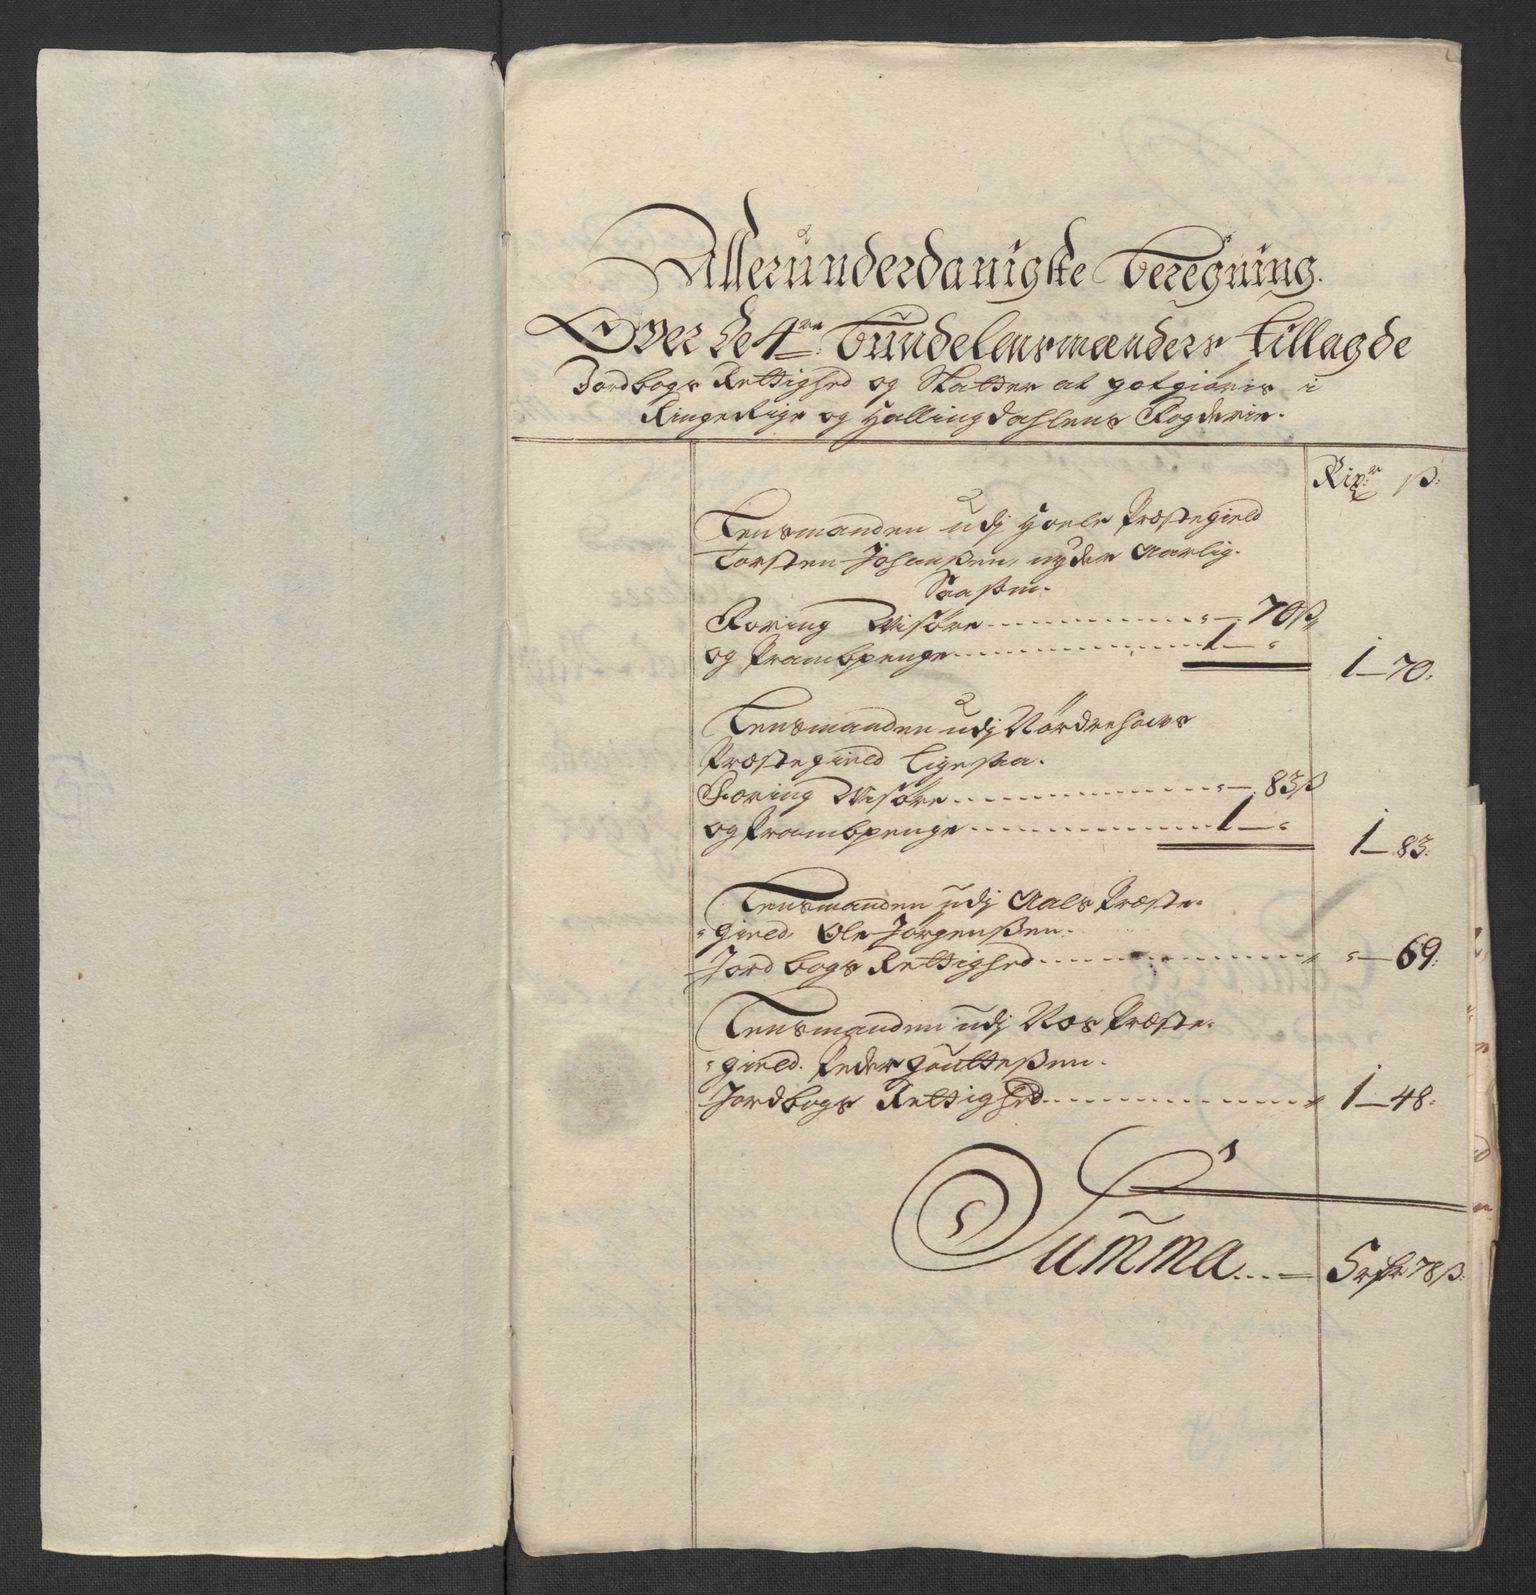 Allerunderdanigste Beregning.
Over de 4re: Bundelensmænders tillagde
Jordbogs Rettighed og Skatter at godtgiøris i
RingeRige og Hallingdahlens Fogderie.
Rixr ß:
Lensmanden udj Hoele Præstegield
Torsten Johanßen, nyder Aarlig.
Saasom.
Foring Wisøre - 70ß
og Prambpenge 1 -
1 - 70:
Lensmanden udj Nørdrehows
Præstegield ligesaa.
Foring Wisøre - 83ß
og Prambpenge 1 -
1 - 83:
Lensmanden udj Aals Præste-
gield, Ole Jørgenßen.
Jordbogs Rettighed - 69:
Lensmanden udj Næs Præste-
gield. Peder Gulteßen.
Jordbogs Rettighed 1 - 48:
Summa - 5 rdr 78ß: